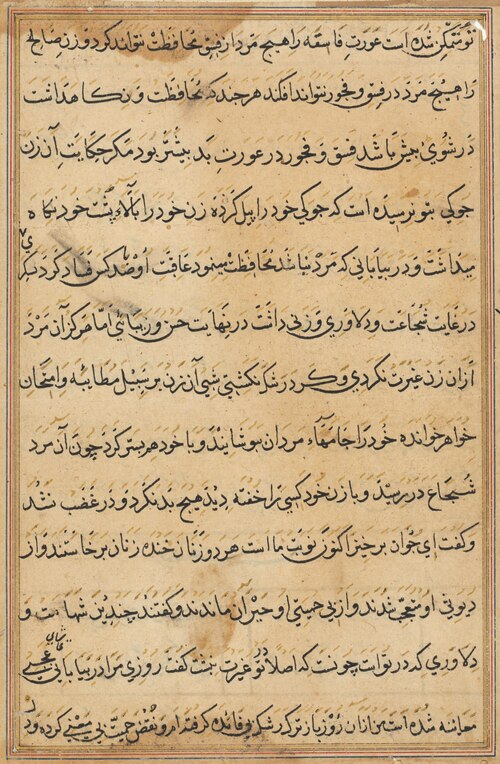 تو متمکن شده است عورت فاسقه را هیچ مرد از فسق محافظت نتواند کرد و زن صالح
را هیچ مرد در فسق و فجور نتواند افکند هرچند که محافظت و نکاهداشت
در شوی بیش باشد فسق و فجور در عورت بد بیشتر بود مکر حکایت آن زن
جوکی بتو نرسیده است که جوکی خود را پیل کرده زن خود را بالاء پشت خود نکاه
میداشت و در بیابانی که مرد نباشد محافظت مینمود عاقبت او صد کس فساد کرد
در غایت شجاعت و دلاوری و زنی داشت در نهایت حسن و زیبائی اما هرکز آن مرد
از آن زن غیرت نکردی و در شک نکشتی شبی آن زن بر سبیل مطایبه و امتحان
خواهر خوانده خود را جامهاء مردان پوشانید و با خود هم بستر کرد چون آن مرد
شجاع در رسید و با زن خود کسی را خفته دید هیچ بد نکرد و در غضب نشد
و کفت ای جوان برخیز اکنون نوبت ما است هر دو زنان خنده زنان برخاستند و از
دیوثی او متعجب شدند و از بی حمیتی او حیران ماندند و کفتند چندین شهامت و
دلاوری که در تو است چونست که اصلا در تو غیرت نیست کفت روزی مرا در بیابانی
معاینه شده است من از آن روز باز ترک رشک بی فائده کرفته ام و نقض حمیت بی معنی کرده